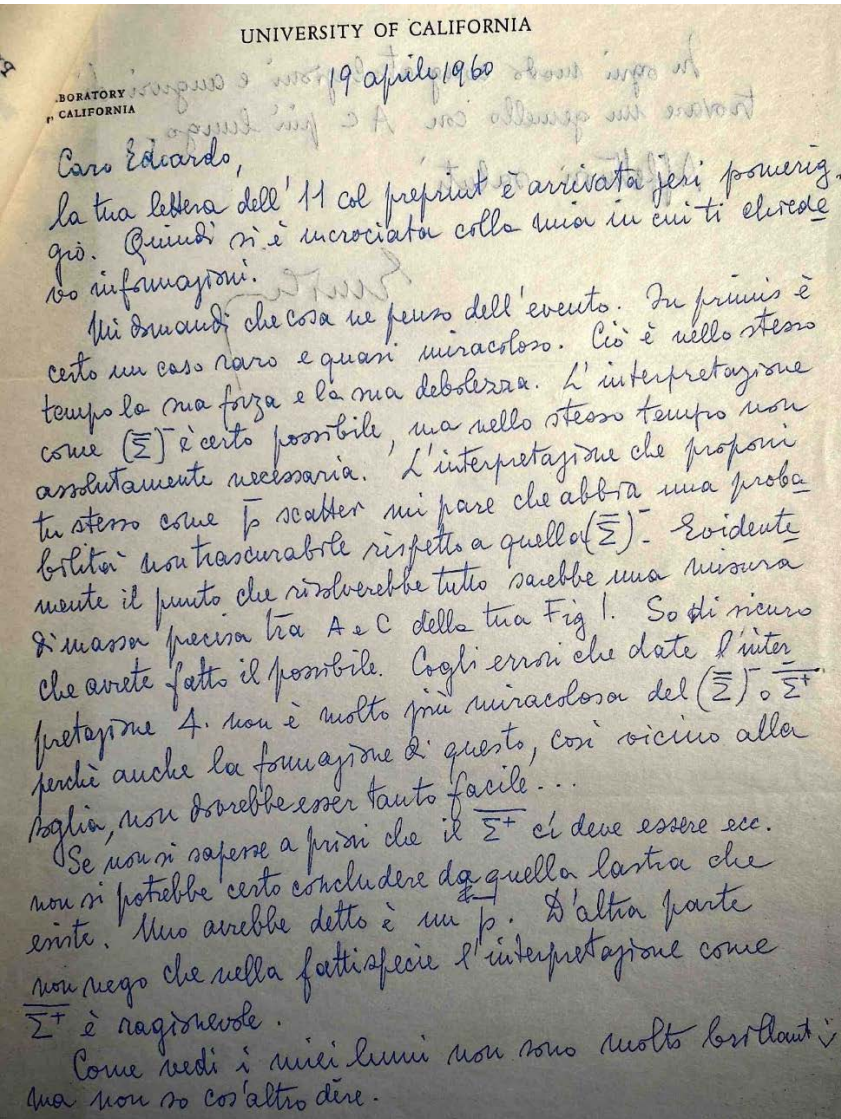 UNIVERSITY OF CALIFORNIA
19 aprile 1960
BORATORY
CALIFORNIA
Caro Edoardo,
la tua lettera dell' 11 col preprint è arrivata jeri pomerig-
gio. Quindi si è incrociata colla mia in cui ti chiede
vo informazioni.
Mi domandi che cosa ne penso dell'evento. In primis è
certo un caso raro e quasi miracoloso. Ciò è nello stesso
tempo la sua forza e la sua debolezza. L'interpretazione
come (Σ̅)⁻ è certo possibile, ma nello stesso tempo non
assolutamente necessaria. L'interpretazione che proponi
tu stesso come p̅ scatter mi pare che abbia una proba
bilità non trascurabile rispetto a quella (Σ̅)⁻. Evidente
mente il punto che risolverebbe tutto sarebbe una misura
di massa precisa tra A e C della tua Fig 1. So di sicuro
che avrete fatto il possibile. Cogli errori che date l'inter
pretazione 4. non è molto più miracolosa del (Σ̅)⁻ o Σ̅⁺
perchè anche la formazione di questo, così vicino alla
soglia, non dovrebbe esser tanto facile...
Se non si sapesse a priori che il Σ̅⁺ ci deve essere ecc.
non si potrebbe certo concludere da quella lastra che
esiste. Uno avrebbe detto è un p̅. D'altra parte
non nego che nella fattispecie l'interpretazione come
Σ̅⁺ è ragionevole.
Come vedi i miei lumi non sono molto brillanti
ma non so cos'altro dire.